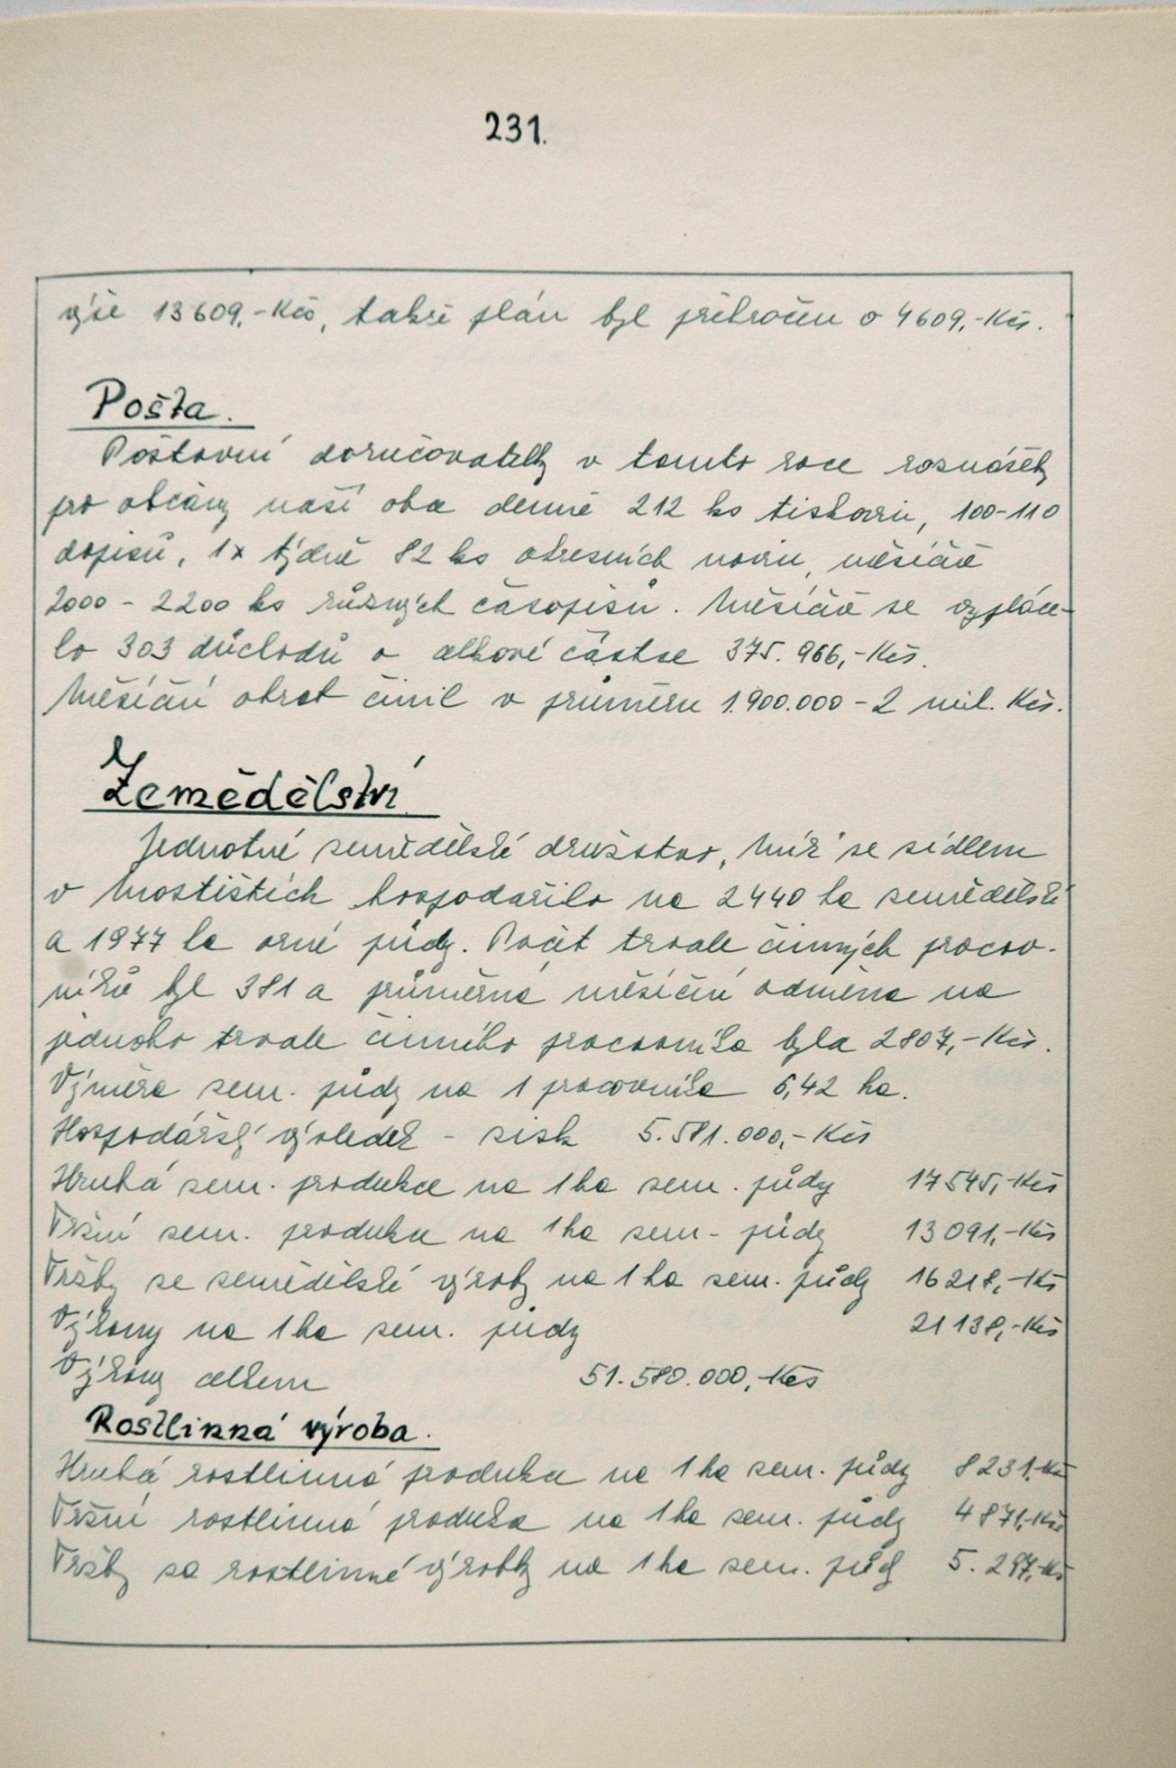 231.
výše 13609,-Kčs, takže plán byl překročen o 4609,-Kčs.
Pošta.
Poštovní doručovatelky v tomto roce roznášely
pro občany naší obce denně 212 ks tiskovin, 100-110
dopisů, 1x týdně 82 ks okresních novin, měsíčně
2000 - 2200 ks různých časopisů. Měsíčně se vypláce-
lo 303 důchodů v celkové částce 375.966,-Kčs.
Měsíční obrat činil v průměru 1.900.000 - 2 mil. Kčs.
Zemědělství
Jednotné zemědělské družstvo "Mír" se sídlem
v Mostištích hospodařilo na 2440 ha zemědělské
a 1977 ha orné půdy. Počet trvale činných pracov-
níků byl 381 a průměrná měsíční odměna na
jednoho trvale činného pracovníka byla 2807,-Kčs.
Výměra zem. půdy na 1 pracovníka 6,42 ha.
Hospodářský výsledek - zisk 5.581.000,-Kčs
Hrubá zem. produkce na 1 ha zem. půdy 17545,-Kčs
Tržní zem. produkce na 1 ha zem. půdy 13091,-Kčs
Tržby ze zemědělské výroby na 1 ha zem. půdy 16218,-Kčs
Výkony na 1 ha zem. půdy 21138,-Kčs
Výkony celkem 51.580.000,-Kčs
Rostlinná výroba.
Hrubá rostlinná produkce na 1 ha zem. půdy 8231,-Kčs
Tržní rostlinná produkce na 1 ha zem. půdy 4871,-Kčs
Tržby za rostlinné výrobky na 1 ha zem. půdy 5.297,-Kčs